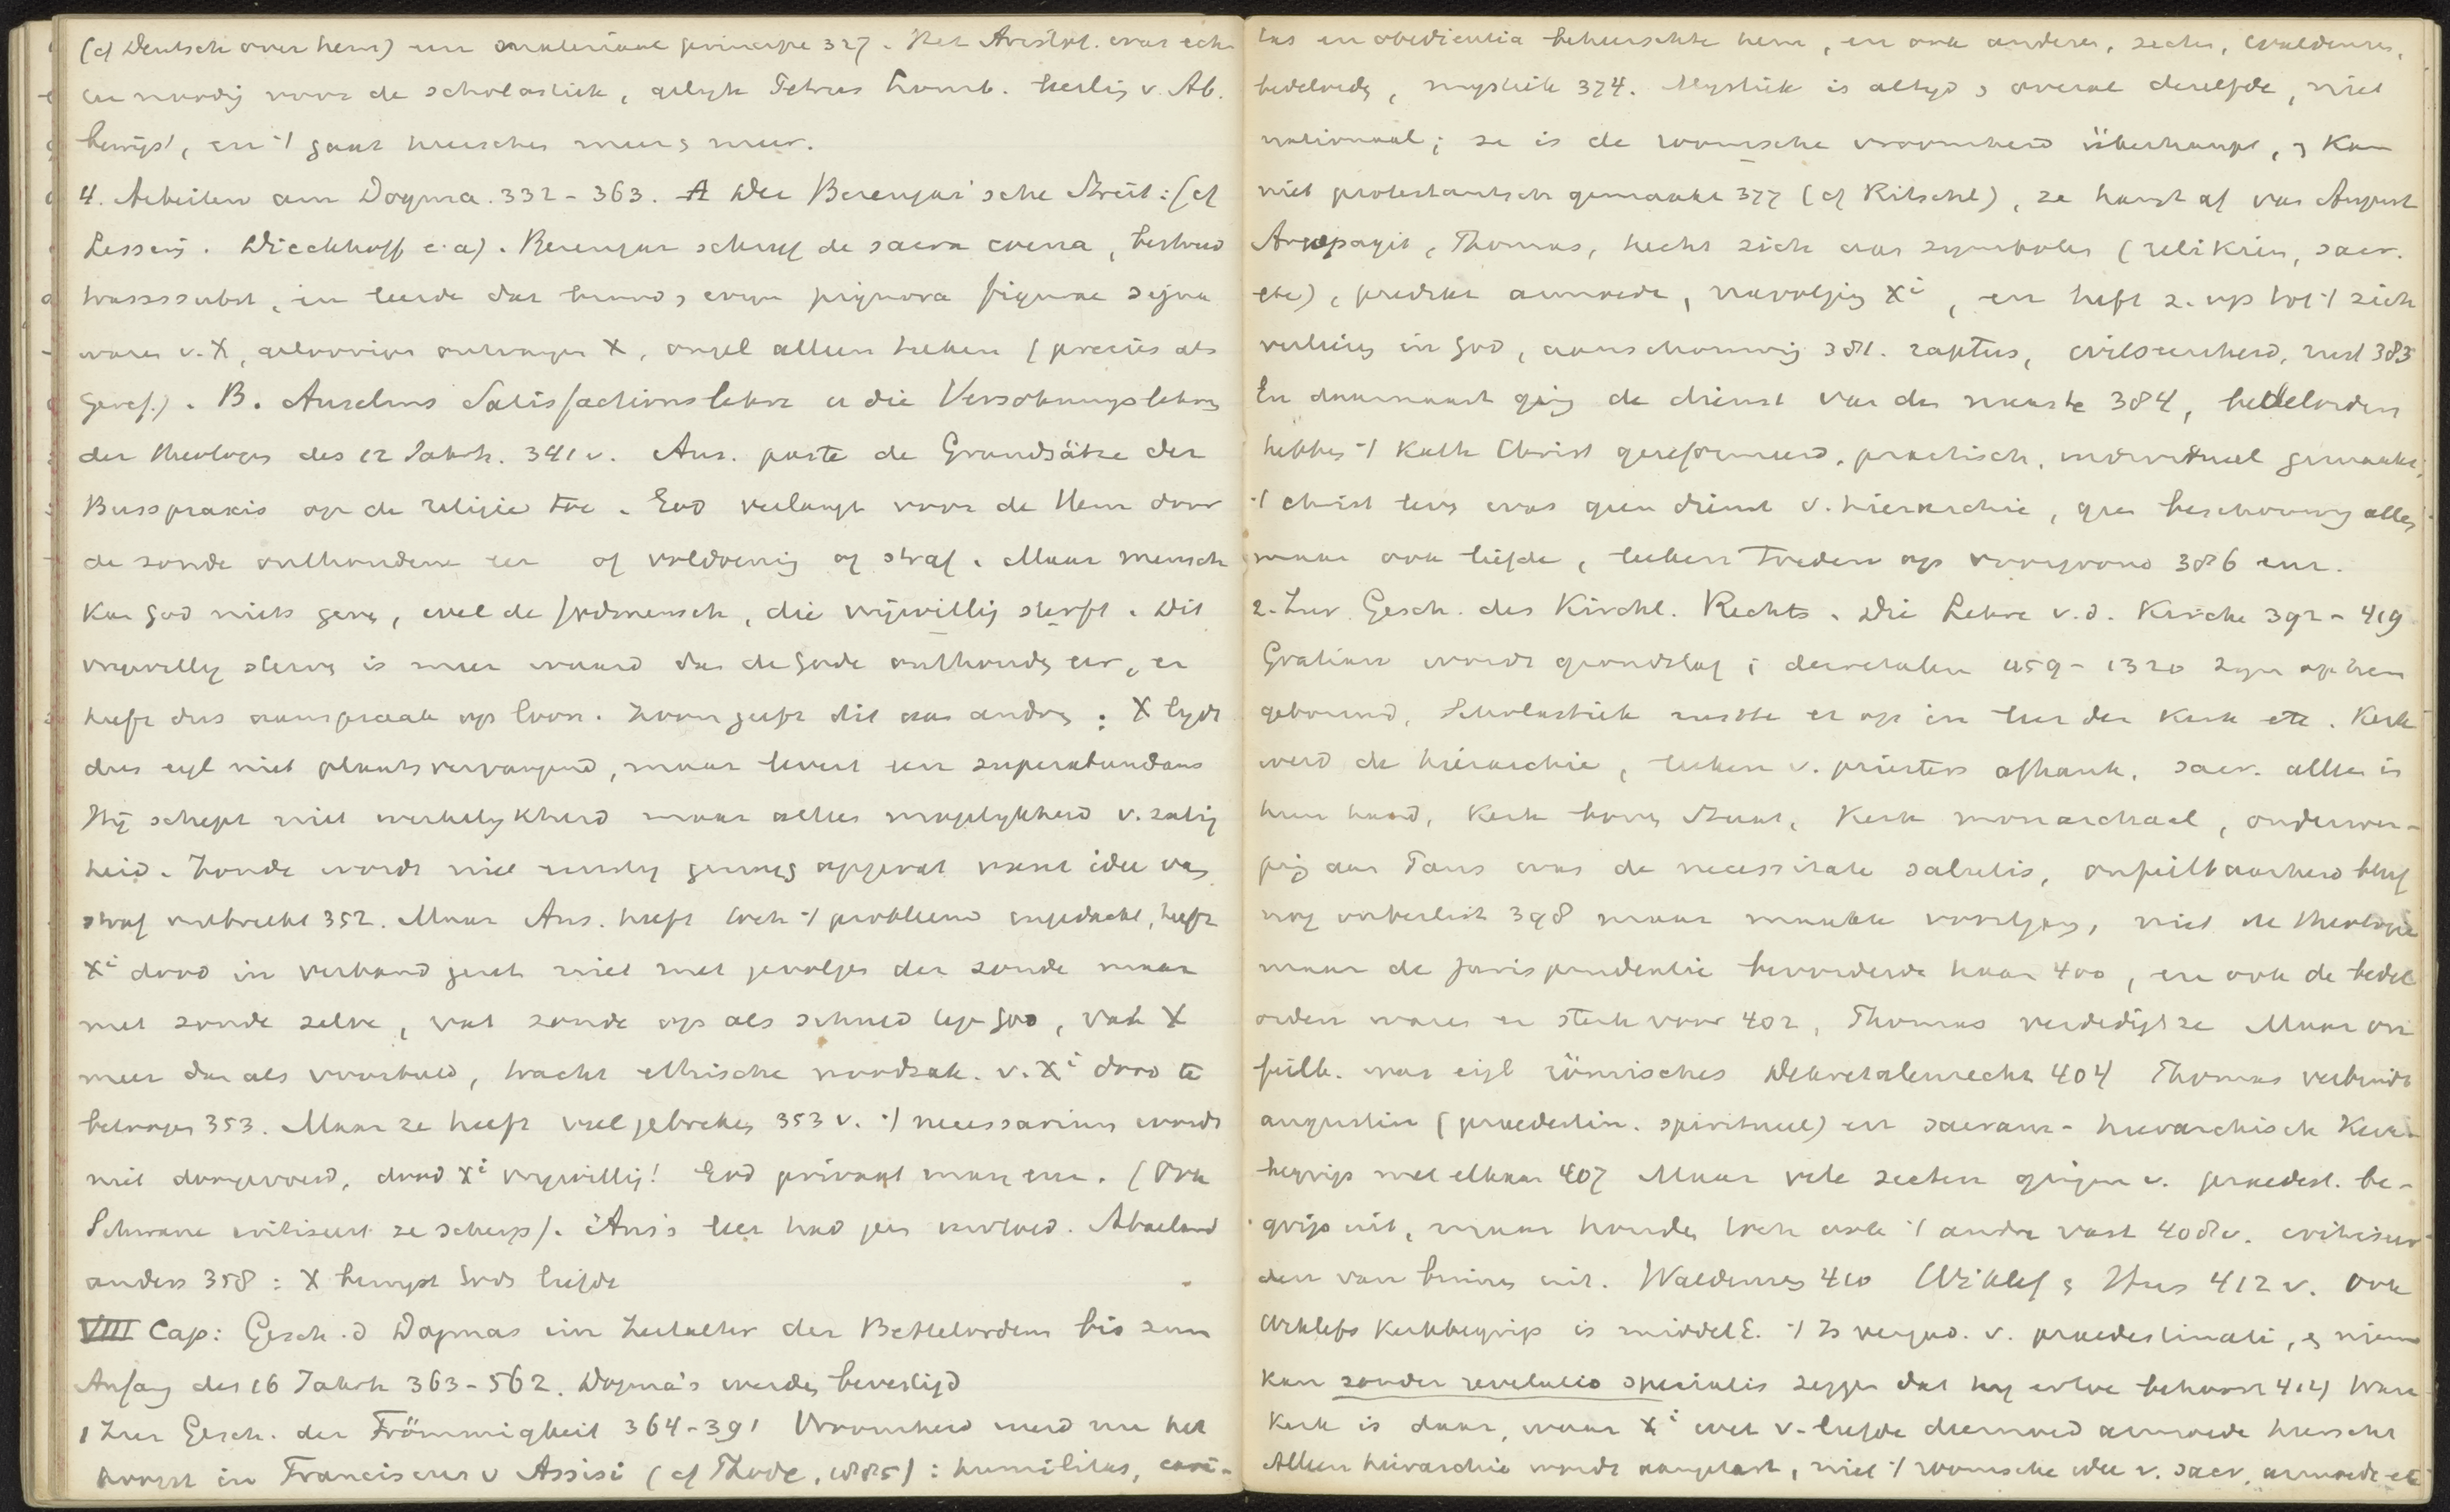 (cf Deutsch over hem) een materiaal principe 327. Het Aristot. was echter
nodig voor de scholastiek, gelijk Petrus Lomb. leerling v. Ab.
bewijst, en 't gaat heerschen meer & meer.
4. Arbeiten am Dogma. 332 - 363. A Der Berengar'sche Streit: (cf
Lessing. Dieckhoff e.a). Berengar schreef de sacra coena, bestreed
transsubst, en leerde dat brood & wijn pignora figurae signa
waren v. X, geloovigen ontvangen X, ongel alleen teeken (precies als
Geref.). B. Anselms Satisfactionslehre u die Versöhnungslehre
der Theologen des 12 Jahrh. 341 v. Ans. paste de Grundsätze der
Busspraxis op de religie toe. God verlangt voor de Hem door
de zonde onthoudene eer of voldoening of straf. Maar mensch
kan God niets geven, wel de Godmensch, die vrijwillig sterft. Dit
vrijwillig sterven is meer waard dan de Gode onthouden eer, er
heeft dus aanspraak op loon. Zoon geeft dit aan andren: X lijdt
dus eigl niet plaatsvervangend, maar levert een superabundans
Hij schept niet werkelijkheid maar alleen mogelijkheid v. zalig
heid. Zonde wordt niet ernstig genoeg opgevat want idee van
straf ontbreekt 352. Maar Ans. heeft toch 't probleem ingedacht, heeft
Xi dood in verband gezet niet met gevolgen der zonde maar
met zonde zelve, vat zonde op als schuld teg. God, vat X
meer dan als voorbeeld, tracht ethische noodzak. v. Xi dood te
betoogen 353. Maar ze heeft veel gebreken 353 v. 't necessarium wordt
niet doorgevoerd, dood Xi vrijwillig! God privaat man enz. (Ook
Schwane critiseert ze scherp). Ans's leer had geen invloed. Abaelard
anders 358: X bewijst Gods liefde
VIII Cap: Gesch. d Dogmas im Zeitalter der Bettelorden bis zum
Anfang des 16 Jahrh 363-562. Dogma's werden bevestigd
1 Zur Gesch. der Frömmigkeit 364-391 Vroomheid werd nu het
hoogst in Franciscus v Assisi (cf Thode, 1885): humilitas, cari-
tas en obedientia beheerschte hem, en ook anderen, secten, Waldenzen,
bedelorden, mystiek 374. Mystiek is altijd & overal dezelfde, niet
nationaal; ze is de roomsche vroomheid überhaupt, & kan
niet protestantsch gemaakt 377 (cf Ritschl), ze hangt af van August
Areopagit, Thomas, hecht zich aan symbolen (relikien, sacr.
etc), predikt armoede, navolging Xi, en heft z. op tot 't zich
verliezen in God, aanschouwing 381. raptus, wilseenheid, rust 383
En daarnaast ging de dienst van den naaste 384, bedelorden
hebben 't Kath Christ gereformeerd, practisch, individueel gemaakt,
't christ leven was geen dienst v. hierarchie, geen beschouwing alleen
maar ook liefde, leeken treden op voorgrond 386 enz.
2. Zur Gesch. des Kirchl. Rechts. Die Lehre v.d. Kirche 392 - 419
Gratian wordt grondslag; decretalen 1159 - 1320 zijn op hem
gebouwd, Scholastiek rustte er op in leer der Kerk etc. Kerk
werd de hierarchie, leeken v. priesters afhank. sacr. alleen in
hun hand, Kerk boven Staat, Kerk monarchaal, onderwer-
ping aan Paus was de necessitate salutis, onfeilbaarheid bleef
nog onbeslist 398 maar maakte voortgang, niet de theologie
maar de jurisprudentie bevorderde haar 400, en ook de bedel
orden waren er sterk voor 402, Thomas verdedigt ze Maar on
feilb. was eigl römisches Dekretalenrecht 404 Thomas verbindt
augustin (praedestin. spiritueel) en sacram- hierarchisch Kerk
begrip met elkaar 407 Maar vele secten gingen v. praedest. be-
grip uit, maar houden toch ook 't andre vast 408 v. critiseer
den van binnen uit. Waldenzen 410 Wiklef & Hus 412 v. Ook
Wiklefs Kerkbegrip is middelE. 't Is vergad. v. praedestinati, & niem
kan zonder revelatio specialis zeggen dat hij ertoe behoort 414) Ware
Kerk is daar, waar Xi wet v. liefde deemoed armoede heerscht
Alleen hierarchie wordt aangetast, niet 't roomsche idee v. sacr. armoede etc